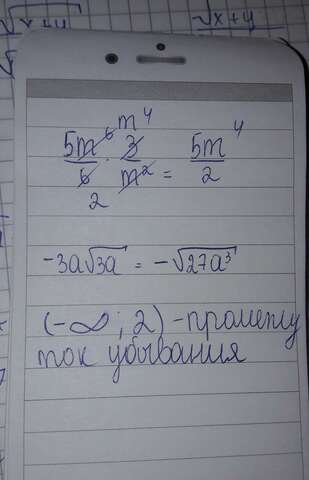 √x+y √x+y
m⁴
5m⁶/6 · 3/m² = 5m⁴/2
2
-3a√3a = -√27a³
(-∞; 2) - промежу
ток убывания